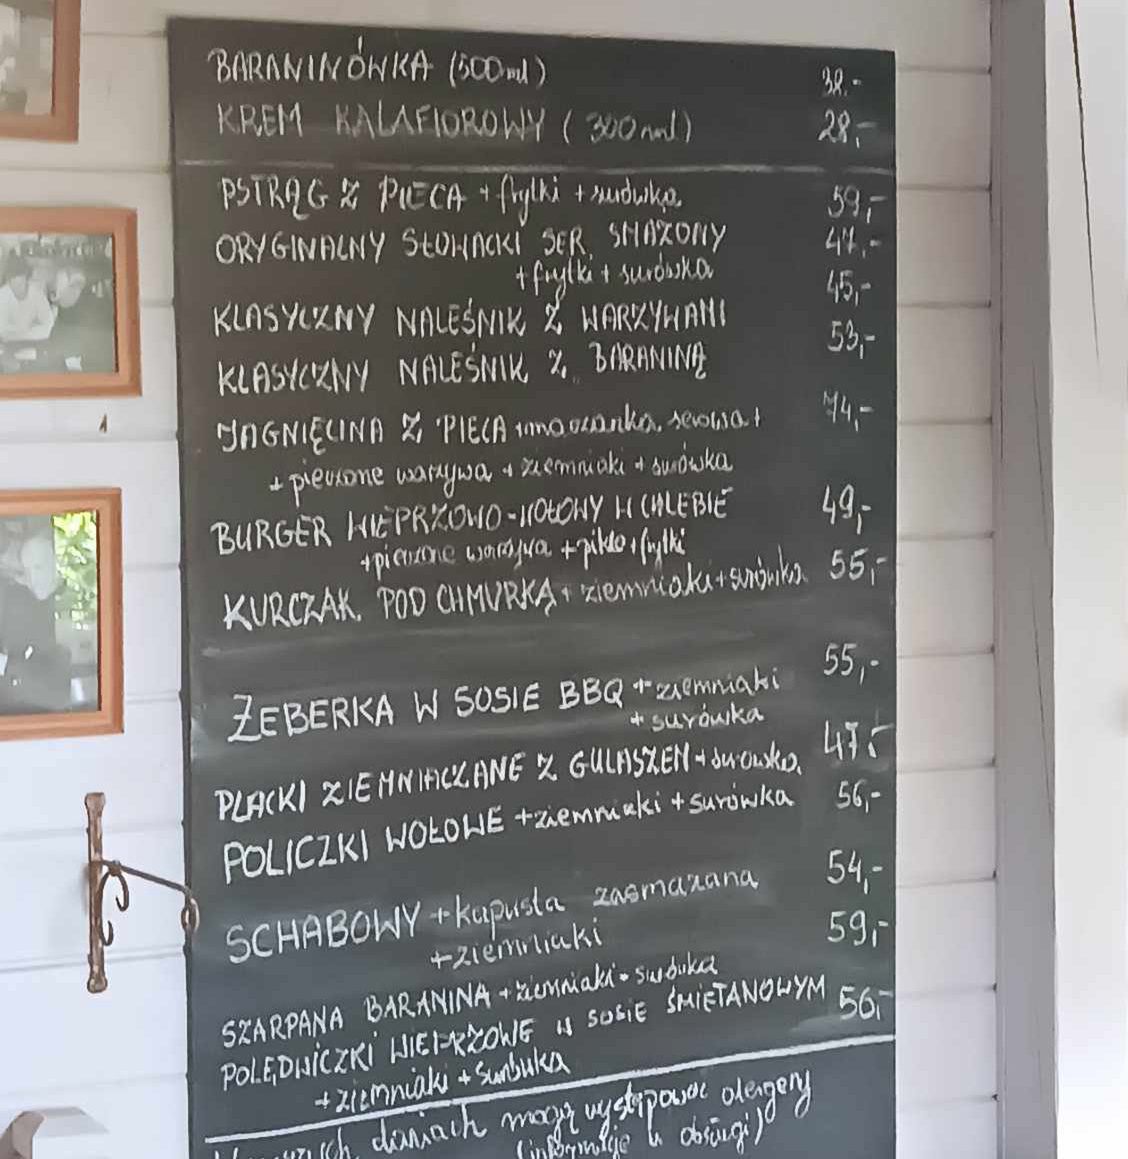 BARANINÓWKA (500ml) 38.-
KREM KALAFIOROWY (300ml) 28,-
PSTRĄG Z PIECA + frytki + surówka 59,-
ORYGINALNY SŁOWACKI SER SMAŻONY 47,-
+ frytki + surówka
KLASYCZNY NALEŚNIK Z WARZYWAMI 45,-
KLASYCZNY NALEŚNIK Z BARANINĄ 53,-
JAGNIĘCINA Z PIECA + maczanka serowa + 74,-
+ pieczone warzywa + ziemniaki + surówka
BURGER WIEPRZOWO-WOŁOWY W CHLEBIE 49,-
+ pieczone warzywa + pikle + frytki
KURCZAK POD CHMURKĄ + ziemniaki + surówka 55,-
ŻEBERKA W SOSIE BBQ + ziemniaki 55,-
+ surówka
PLACKI ZIEMNIACZANE Z GULASZEM + surówka 47,-
POLICZKI WOŁOWE + ziemniaki + surówka 56,-
SCHABOWY + kapusta zasmażana 54,-
+ ziemniaki
SZARPANA BARANINA + ziemniaki + surówka 59,-
POLĘDWICZKI WIEPRZOWE W SOSIE ŚMIETANOWYM 56,-
+ ziemniaki + surówka
daniach mogą występować alergeny
(informacje u obsługi)